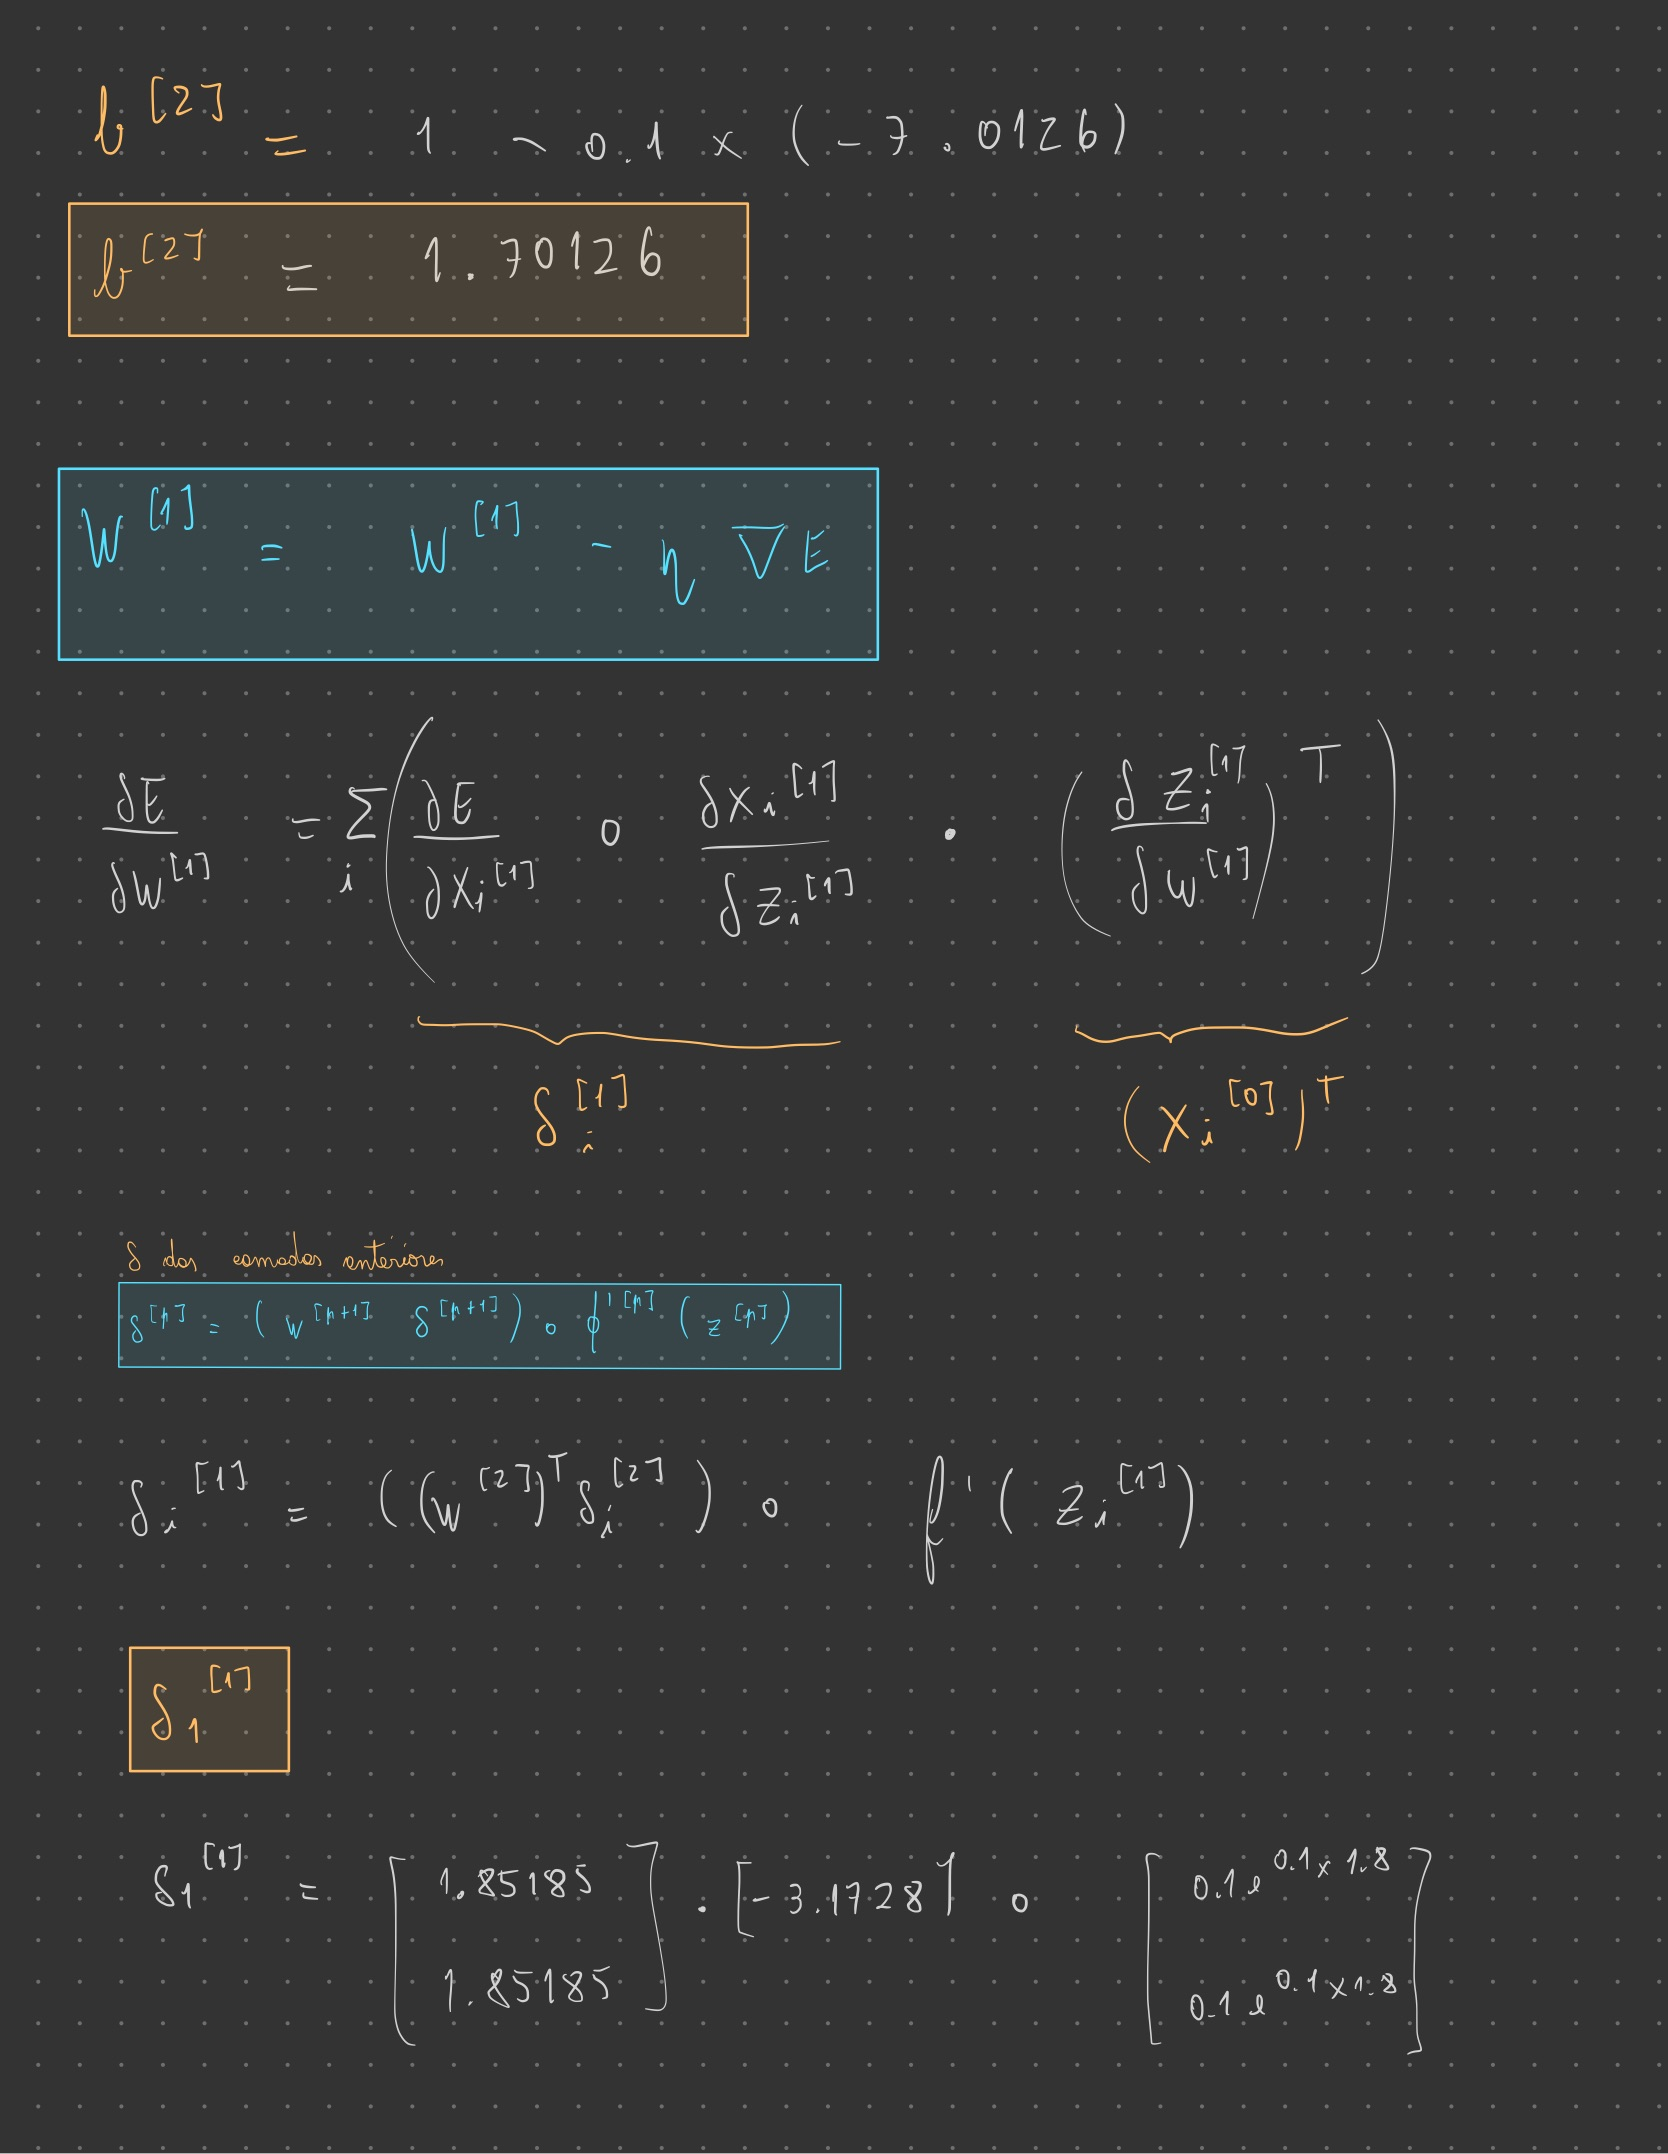 b^[2] = 1 - 0.1 × (-7.0126)
b^[2] = 1.70126
W^[1] = W^[1] - η ∇E
∂E/∂W^[1] = Σ_i ( ∂E/∂X_i^[1] ∘ ∂X_i^[1]/∂Z_i^[1] · (∂Z_i^[1]/∂W^[1])^T )
δ_i^[1] (X_i^[0])^T
δ das camadas anteriores
δ^[n] = (W^[n+1] δ^[n+1]) ∘ ϕ'^[n] (Z^[n])
δ_i^[1] = ((W^[2])^T δ_i^[2]) ∘ f'(Z_i^[1])
δ_1^[1]
δ_1^[1] = [1.85185 1.85185] · [-3.1728] ∘ [0.1 e^0.1×1.8 0.1 e^0.1×1.8]